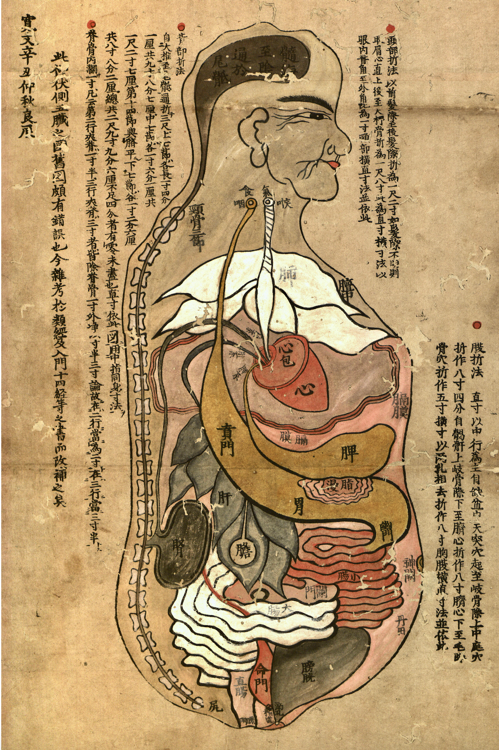 頭部折法 以前髮際至後髮際折為一尺二寸如髮際不明則
取眉心直上後至大杼骨折為一尺八寸此為直寸橫寸法以
眼內眥角至外眥角為一寸頭部橫直寸法並依此
腹折法 直寸以中行為主自缺盆內天突穴起至歧骨際上中庭穴
折作八寸四分自髑上歧骨際下至臍心折作八寸臍心下至毛際
骨穴折作五寸橫寸以兩乳相去折作八寸胸腹橫直寸法並依此
背部折法
自大椎至尾骶通折三尺上七節各長一寸四分
一厘共九寸八分七厘中七節各一寸六分一厘共
一尺一寸二分七厘第十四節與臍平下七節各一寸二分六厘
共八寸八分二厘總共二尺九寸九分六厘不足四分者有零未盡也直寸依此図用中指同身寸法
脊骨內闊一寸凡云第二行夾脊一寸半三行夾脊三寸者皆除脊骨一寸外淨寸半三寸論故在二行當為二寸在三行當為三寸半
此今伏側五臟之図舊図頗有錯誤也今雜考於類經及入門十四經等之書而改補之矣
寛文辛丑仰秋良
髓
至陰
過於
尾骶
食
咽
氣
喉
頸骨三節
肺
膻中
心包
心
膈膜
膈膜
賁門
脾
脂
胃
肝
膽
腎
幽門
小腸
闌門
大腸
丹田
直腸
命門
膀胱
尻